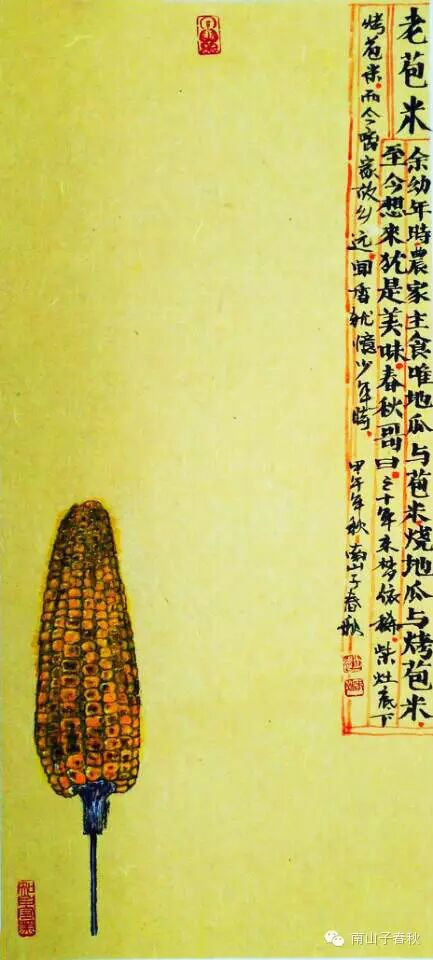 老苞米
余幼年時農家主食唯地瓜与苞米燒地瓜与烤苞米
至今想来犹是美味春秋哥曰三十年来梦依稀柴灶底下
烤苞米而今离家故乡远闻香就憶少年時
甲午年秋南山子春秋
南山子春秋